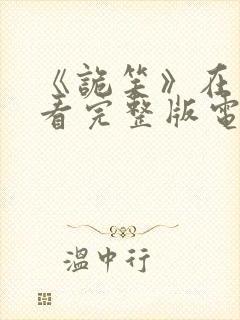 《詭笑》在
看完整版電
溫中行